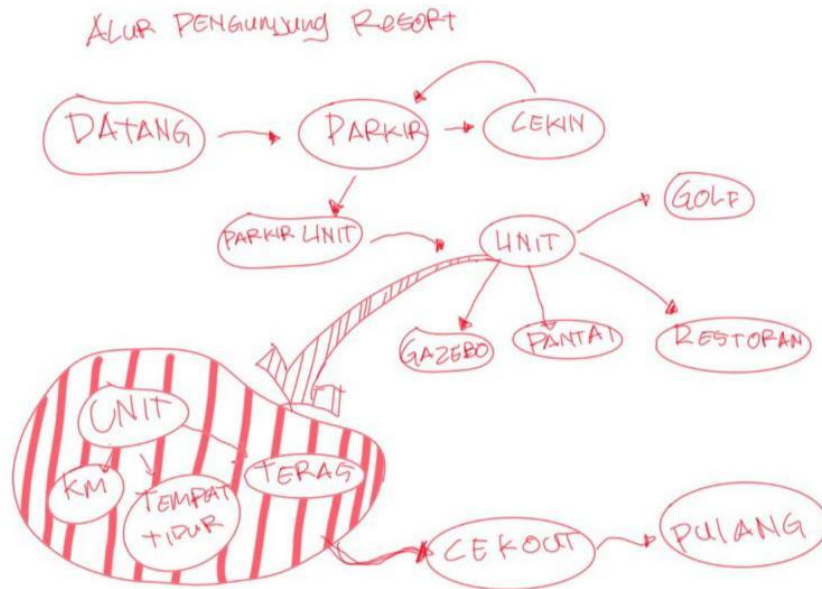 ALUR PENGUNJUNG RESORT
DATANG
PARKIR
CEKIN
GOLF
PARKIR UNIT
UNIT
GAZEBO
PANTAI
RESTORAN
UNIT
KM
TEMPAT
TIDUR
TERAS
CEKOUT
PULANG